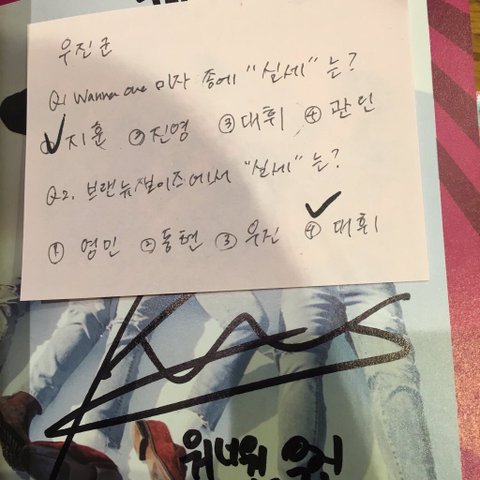 우진군
Q1 Wanna one 미자 중에 "실세"는?
① 지훈 ② 진영 ③ 대휘 ④ 관린
Q2. 브랜뉴보이즈에서 "실세"는?
① 영민 ② 동현 ③ 우진 ④ 대휘
워너원 우진